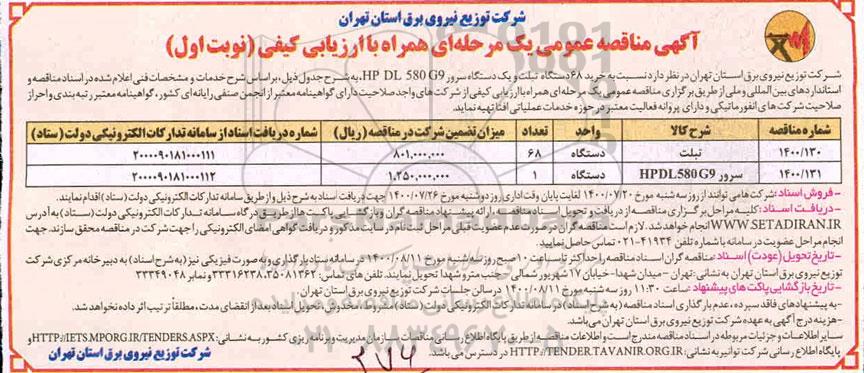 شرکت توزیع نیروی برق استان تهران
آگهی مناقصه عمومی یک مرحله‌ای همراه با ارزیابی کیفی (نوبت اول)
شرکت توزیع نیروی برق استان تهران در نظر دارد نسبت به خرید ۶۸ دستگاه تبلت و یک دستگاه سرور HP DL 580 G9، به شرح جدول ذیل، براساس شرح خدمات و مشخصات فنی اعلام شده در اسناد مناقصه و
استانداردهای بین المللی و ملی از طریق برگزاری مناقصه عمومی یک مرحله ای همراه با ارزیابی کیفی از شرکت های واجد صلاحیت دارای گواهینامه معتبر از انجمن صنفی رایانه ای کشور، گواهینامه معتبر رتبه بندی و احراز
صلاحیت شرکت های انفورماتیکی و دارای پروانه فعالیت معتبر در حوزه خدمات عملیاتی افتا تهیه نماید.
شماره مناقصه شرح کالا واحد تعداد میزان تضمین شرکت در مناقصه (ریال) شماره دریافت اسناد از سامانه تدارکات الکترونیکی دولت (ستاد)
۱۴۰۰/۱۳۰ تبلت دستگاه ۶۸ ۸۰۱,۰۰۰,۰۰۰ ۲۰۰۰۰۹۰۱۸۱۰۰۰۱۱۱
۱۴۰۰/۱۳۱ سرور HPDL580G9 دستگاه ۱ ۱,۲۵۰,۰۰۰,۰۰۰ ۲۰۰۰۰۹۰۱۸۱۰۰۰۱۱۲
- فروش اسناد: شرکت ها می توانند از روز سه شنبه مورخ ۱۴۰۰/۰۷/۲۰ لغایت پایان وقت اداری روز دوشنبه مورخ ۱۴۰۰/۰۷/۲۶ جهت دریافت اسناد به شرح ذیل و از طریق سامانه تدارکات الکترونیکی دولت (ستاد) اقدام نمایند.
- دریافت اسناد: کلیه مراحل برگزاری مناقصه از دریافت و تحویل اسناد مناقصه تا ارائه پیشنهاد مناقصه گران و بازگشایی پاکت ها از طریق درگاه سامانه تدارکات الکترونیکی دولت (ستاد) به آدرس
WWW.SETADIRAN.IR انجام خواهد شد. لازم است مناقصه گران در صورت عدم عضویت قبلی مراحل ثبت نام در سایت مذکور و دریافت گواهی امضای الکترونیکی را جهت شرکت در مناقصه محقق سازند. جهت
انجام مراحل عضویت در سامانه با شماره تلفن ۴۱۹۳۴-۰۲۱ تماس حاصل نمایید.
- تاریخ تحویل (عودت) اسناد: مناقصه گران اسناد مناقصه را حداکثر تا ساعت ۱۰ صبح روز سه شنبه مورخ ۱۴۰۰/۰۸/۱۱ در سامانه ستاد بارگذاری و به صورت فیزیکی نیز (به شرح اسناد) به دبیرخانه مرکزی شرکت
توزیع نیروی برق استان تهران به نشانی: تهران - میدان شهدا- خیابان ۱۷ شهریور شمالی - جنب مترو شهدا تحویل نمایند. تلفن های تماس: ۳۵۰۸۱۳۶۲، ۳۳۳۱۶۲۳۸ و نمابر ۳۳۳۴۹۰۴۸
- تاریخ بازگشایی پاکت های پیشنهاد: ساعت ۱۱:۳۰ روز سه شنبه مورخ ۱۴۰۰/۰۸/۱۱ در سالن جلسات شرکت توزیع نیروی برق استان تهران.
- به پیشنهادهای فاقد سپرده، عدم بارگذاری اسناد مناقصه (به شرح اسناد) در سامانه تدارکات الکترونیکی دولت (ستاد)، مشروط، مخدوش، تحویل اسناد بعد از انقضای مدت، مطلقاً ترتیب اثر داده نخواهد شد.
- هزینه درج آگهی به عهده شرکت توزیع نیروی برق استان تهران می باشد.
سایر اطلاعات و جزئیات مربوطه در اسناد مناقصه مندرج است و اطلاعات مناقصه از طریق پایگاه اطلاع رسانی مناقصات سازمان مدیریت و برنامه ریزی کشور به نشانی: HTTP://IETS.MPORG.IR/TENDERS.ASPX و
پایگاه اطلاع رسانی شرکت توانیر به نشانی: HTTP://TENDER.TAVANIR.ORG.IR در دسترس می باشد.
شرکت توزیع نیروی برق استان تهران
۲۷۶